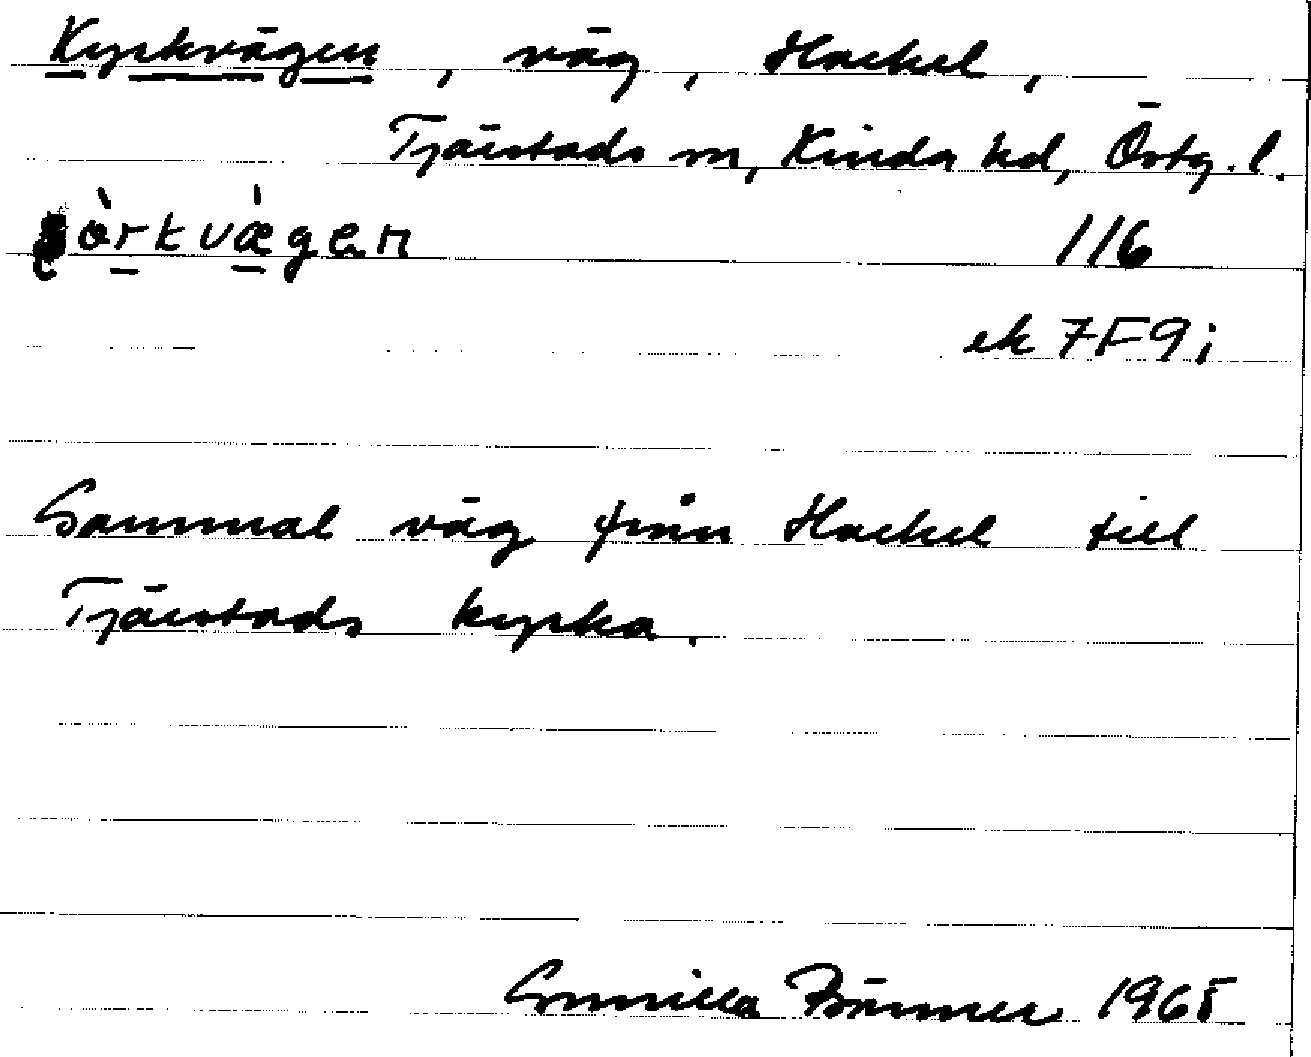 Kyrkvägen, väg, Hackel,
Tjärstads sn, Kinda hd, Östg. l.
116
ek 7F9i
Gammal väg från Hackel till
Tjärstads kyrka.
Gunilla 1965